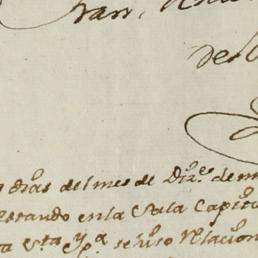 Fran.
de
dias del mes de Dizre. de m
estando en la Sala Capitu
a Vsta. y pa. se hiso Relacion